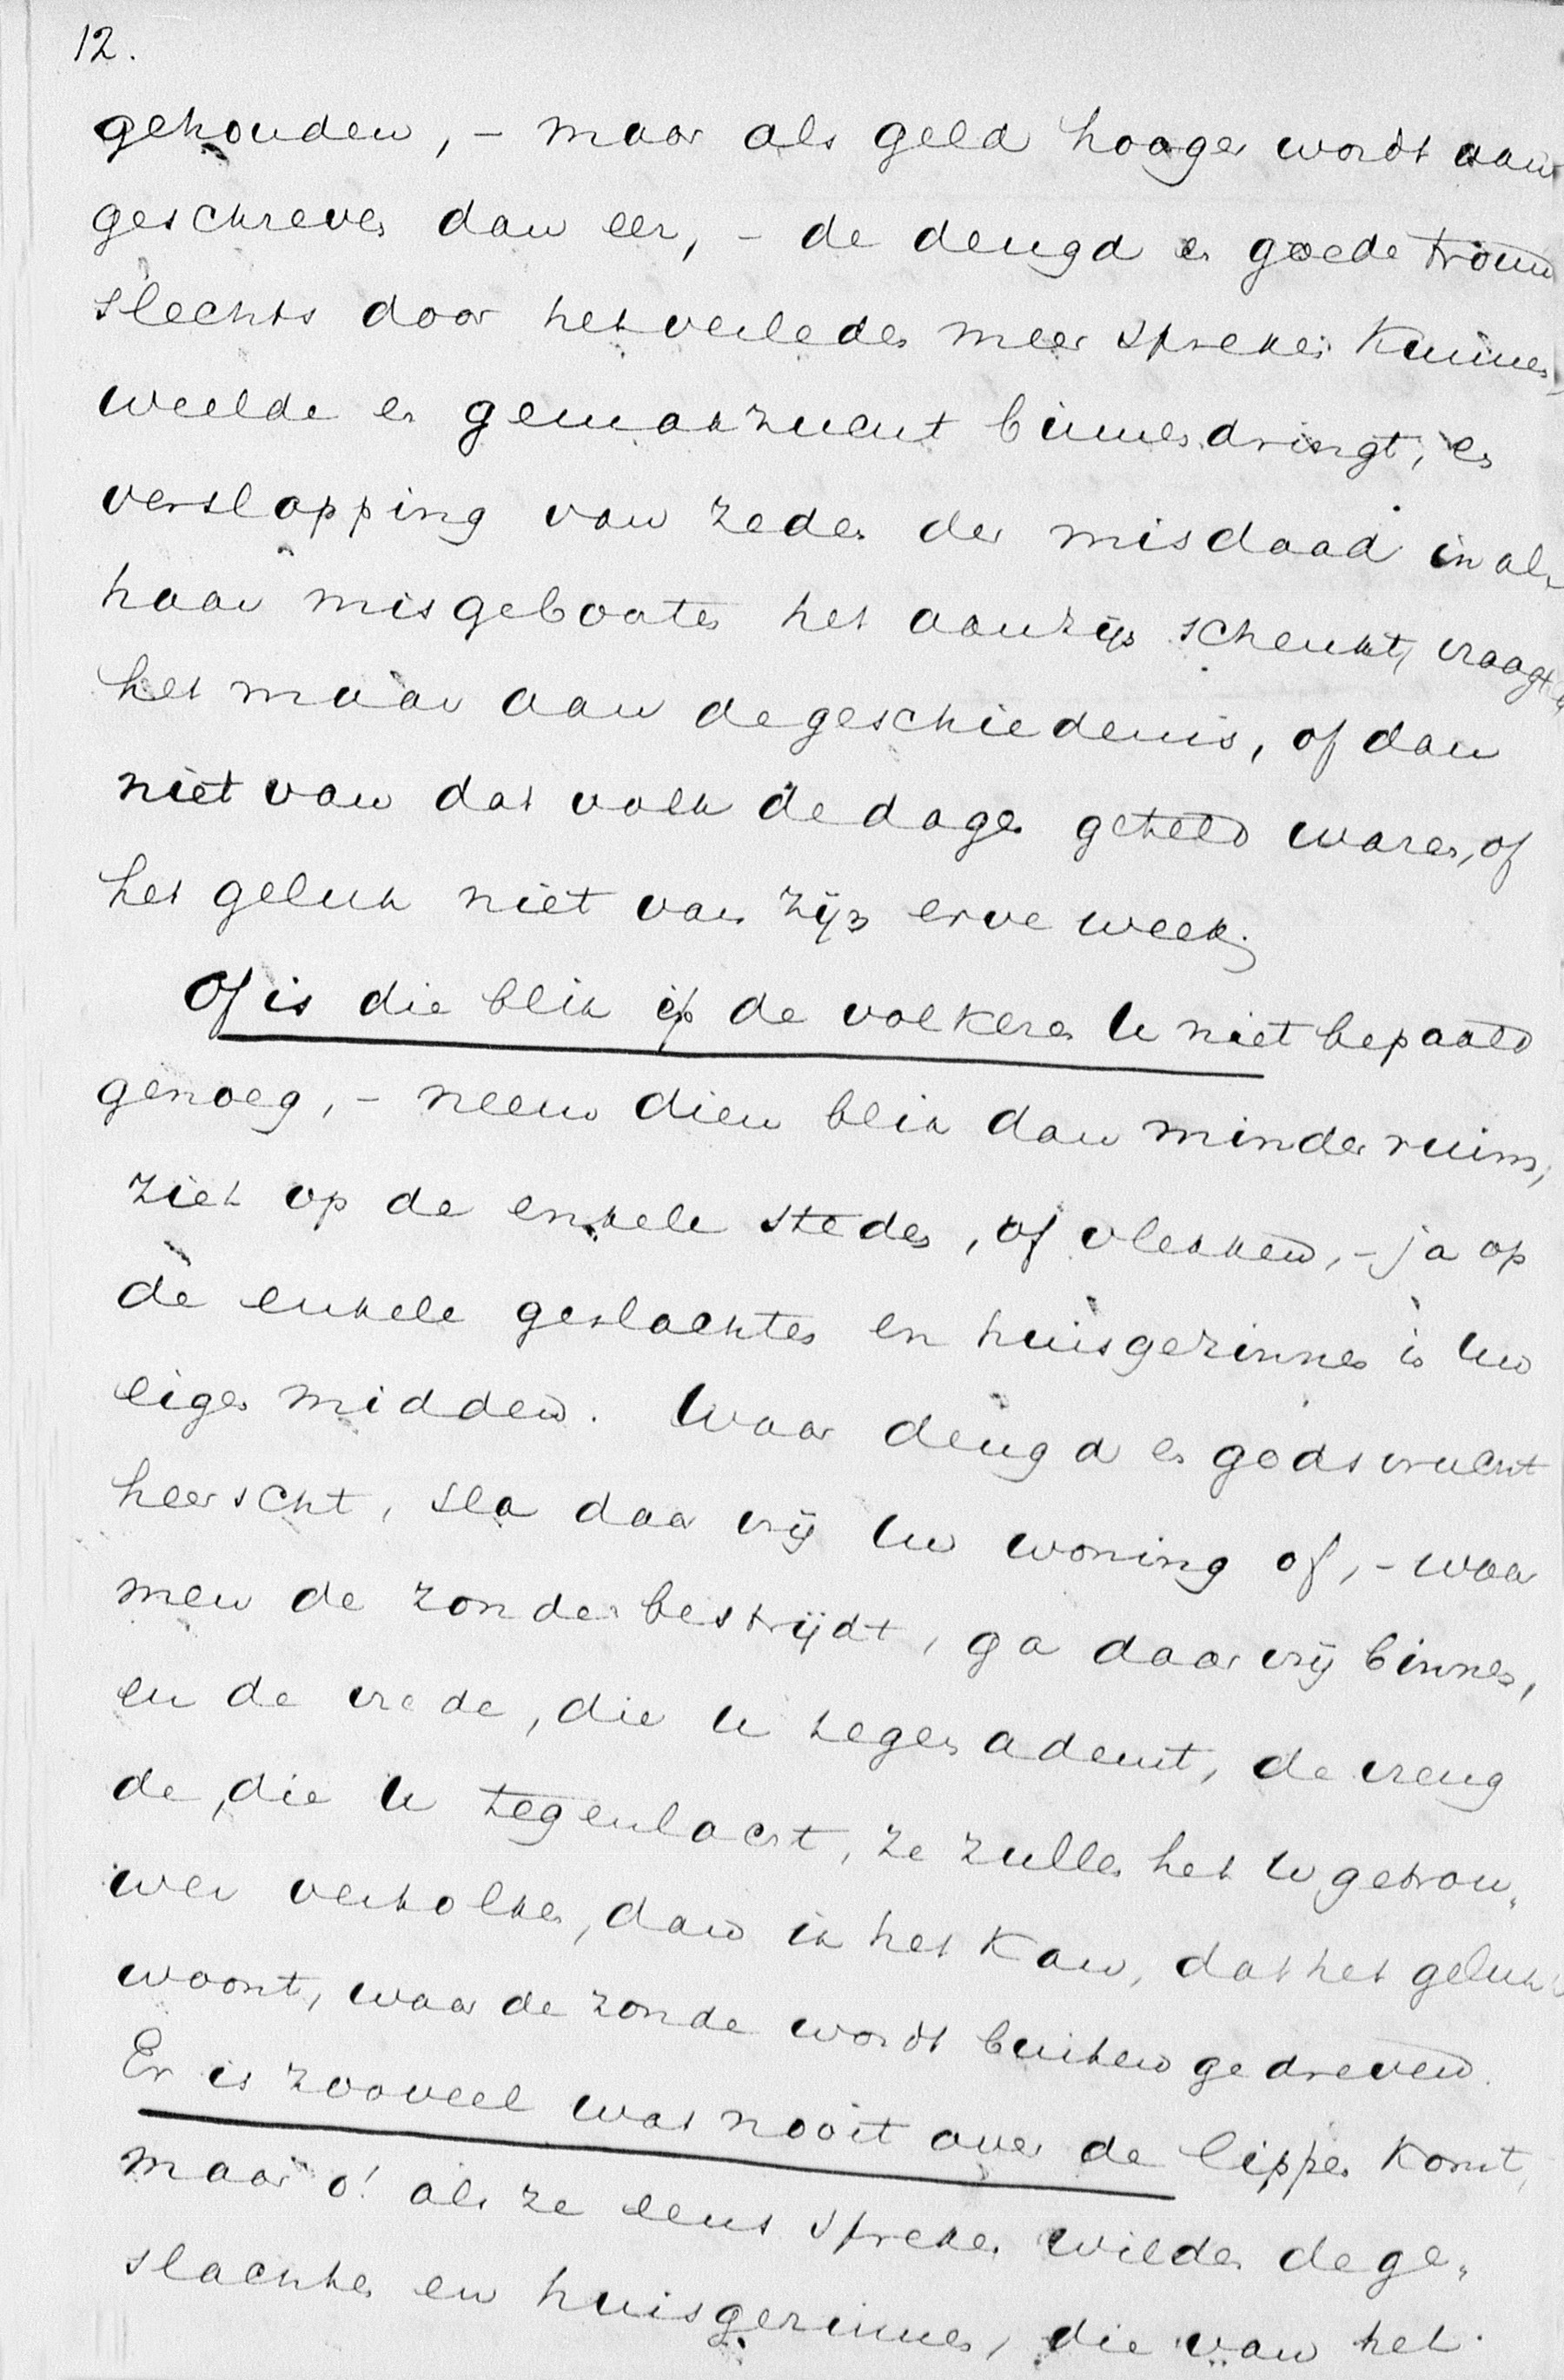 12.
gehouden, - maar als geld hooger wordt aan
geschreven dan eer, - de deugd en goede trouw
slechts door het verleden meer spreken kunnen,
weelde en gemakzucht binnendringt, en
verslapping van zeden der misdaad in al
haar misgeboorte het aanzijn schenkt, vraagt
het maar aan de geschiedenis, of dan
niet van dat volk de dagen geteld waren, of
het geluk niet van zijn erve week.
Of is die blik op de volkeren U niet bepaald
genoeg, - neem dien blik dan minder ruim,
ziet op de enkele steden, of vlekken, - ja op
de enkele geslachten en huisgezinnen in Uw
eigen midden. Waar deugd en godsvrucht
heerscht, sla daar vrij Uw woning op, - waar
men de zonde bestrijdt, ga daar vrij binnen,
en de vrede, die U tegenademt, de vreug
de, die U tegenlacht, ze zullen het U getrou„
wer vertolken, dan ik het kan, dat het geluk
woont, waar de zonde wordt buiten gedreven.
Er is zooveel wat nooit over de lippen komt,
maar o! als ze eens spreken wilden de ge„
slachten en huisgezinnen, die van het